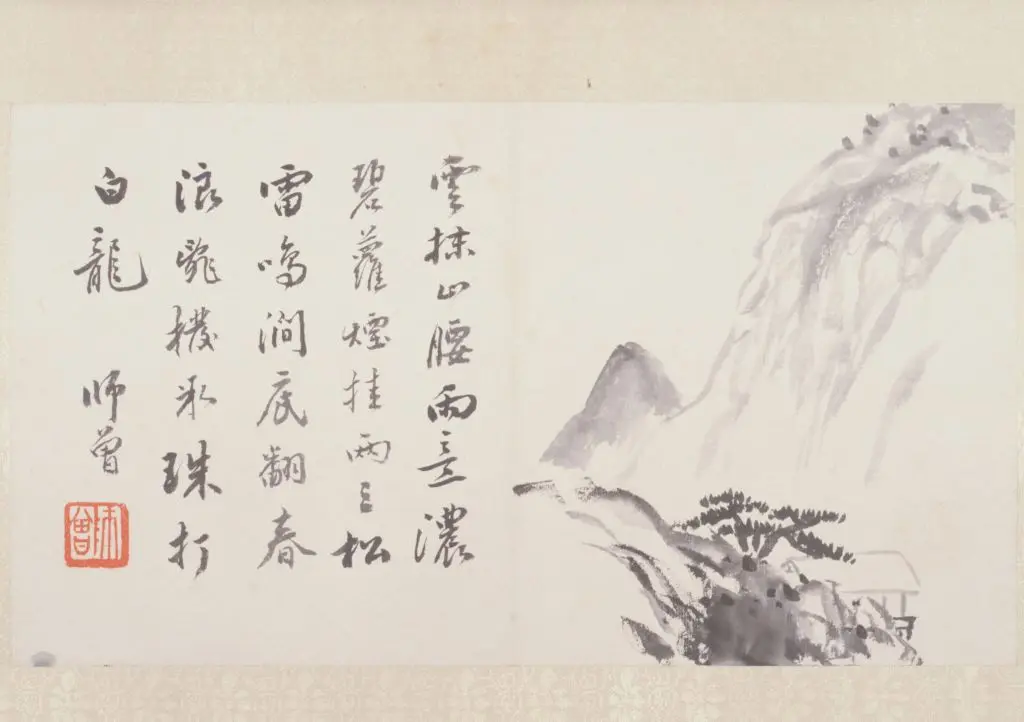 雲抹山腰雨意濃
碧蘿煙挂兩三松
雷鳴澗底翻春
浪珠打
白龍 師曾
師曾